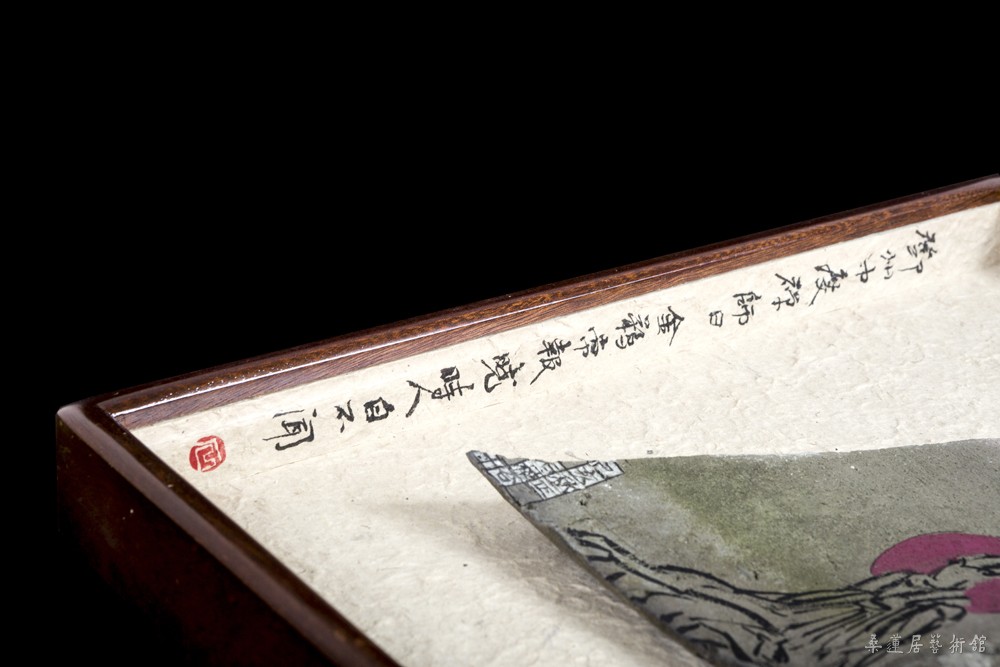 鄧州中度禪師曰金鷄常報曉時人自不聞
桑蓮居藝術館